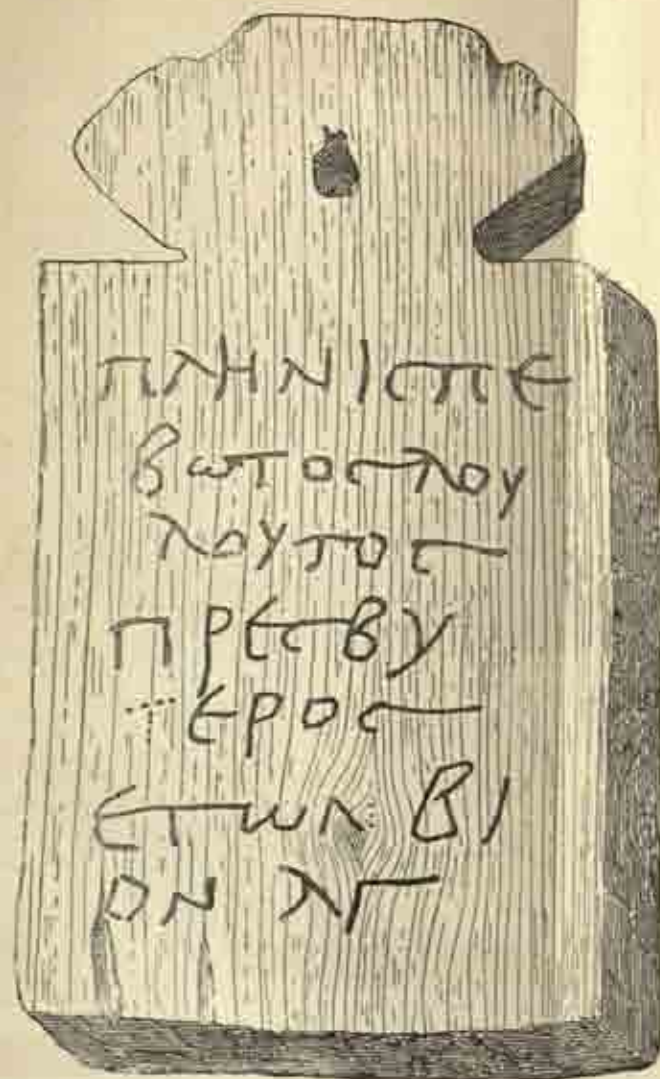 ΠΛΗΝΙϹΠΕ
ΒωΤΟϹΛΟΥ
ΛΟΥΤΟϹ
ΠΡΕϹΒΥ
ΤΕΡΟϹ
ΕΤωΝ ΒΙ
ΟΝ ΛΓ